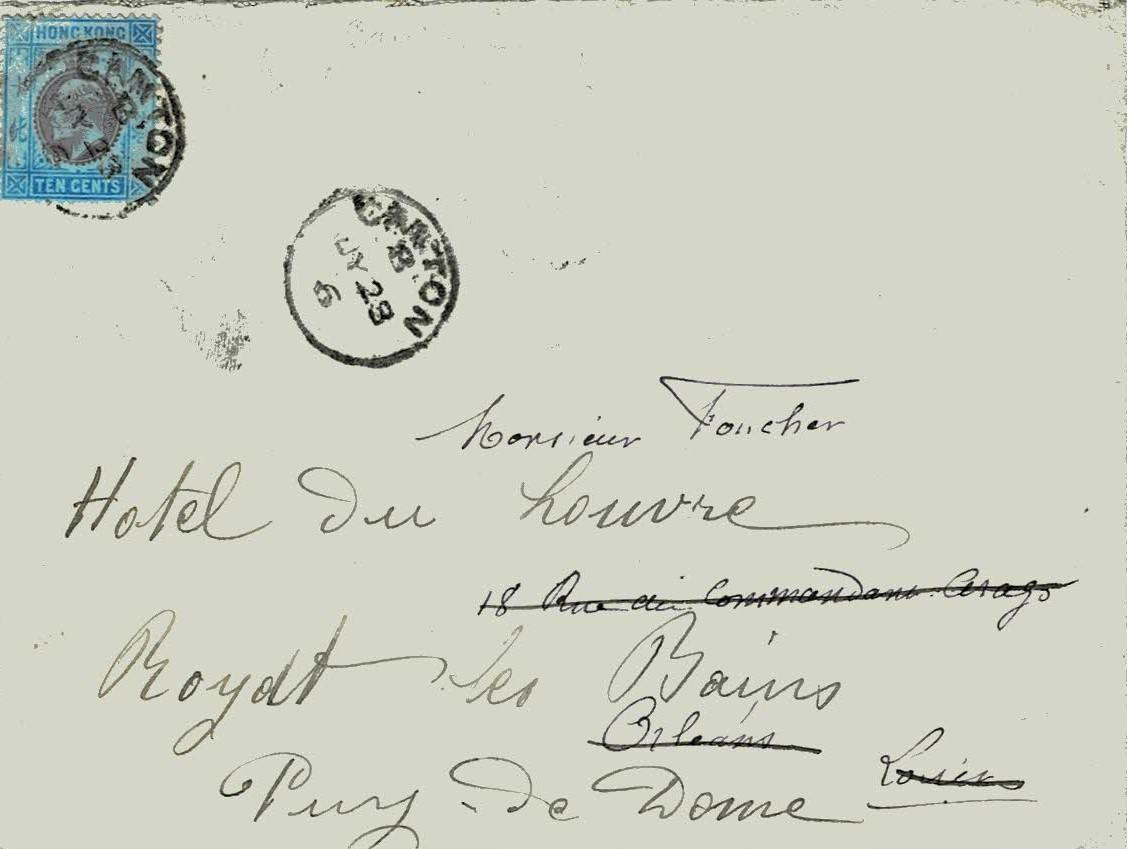 HONG KONG
TEN CENTS
CANTON
B
CANTON
B
JY 28
5
Monsieur Foucher
Hotel Du Louvre
18 Rue du Commandant Arago
Royat les Bains
Orléans
Puy-de Dome